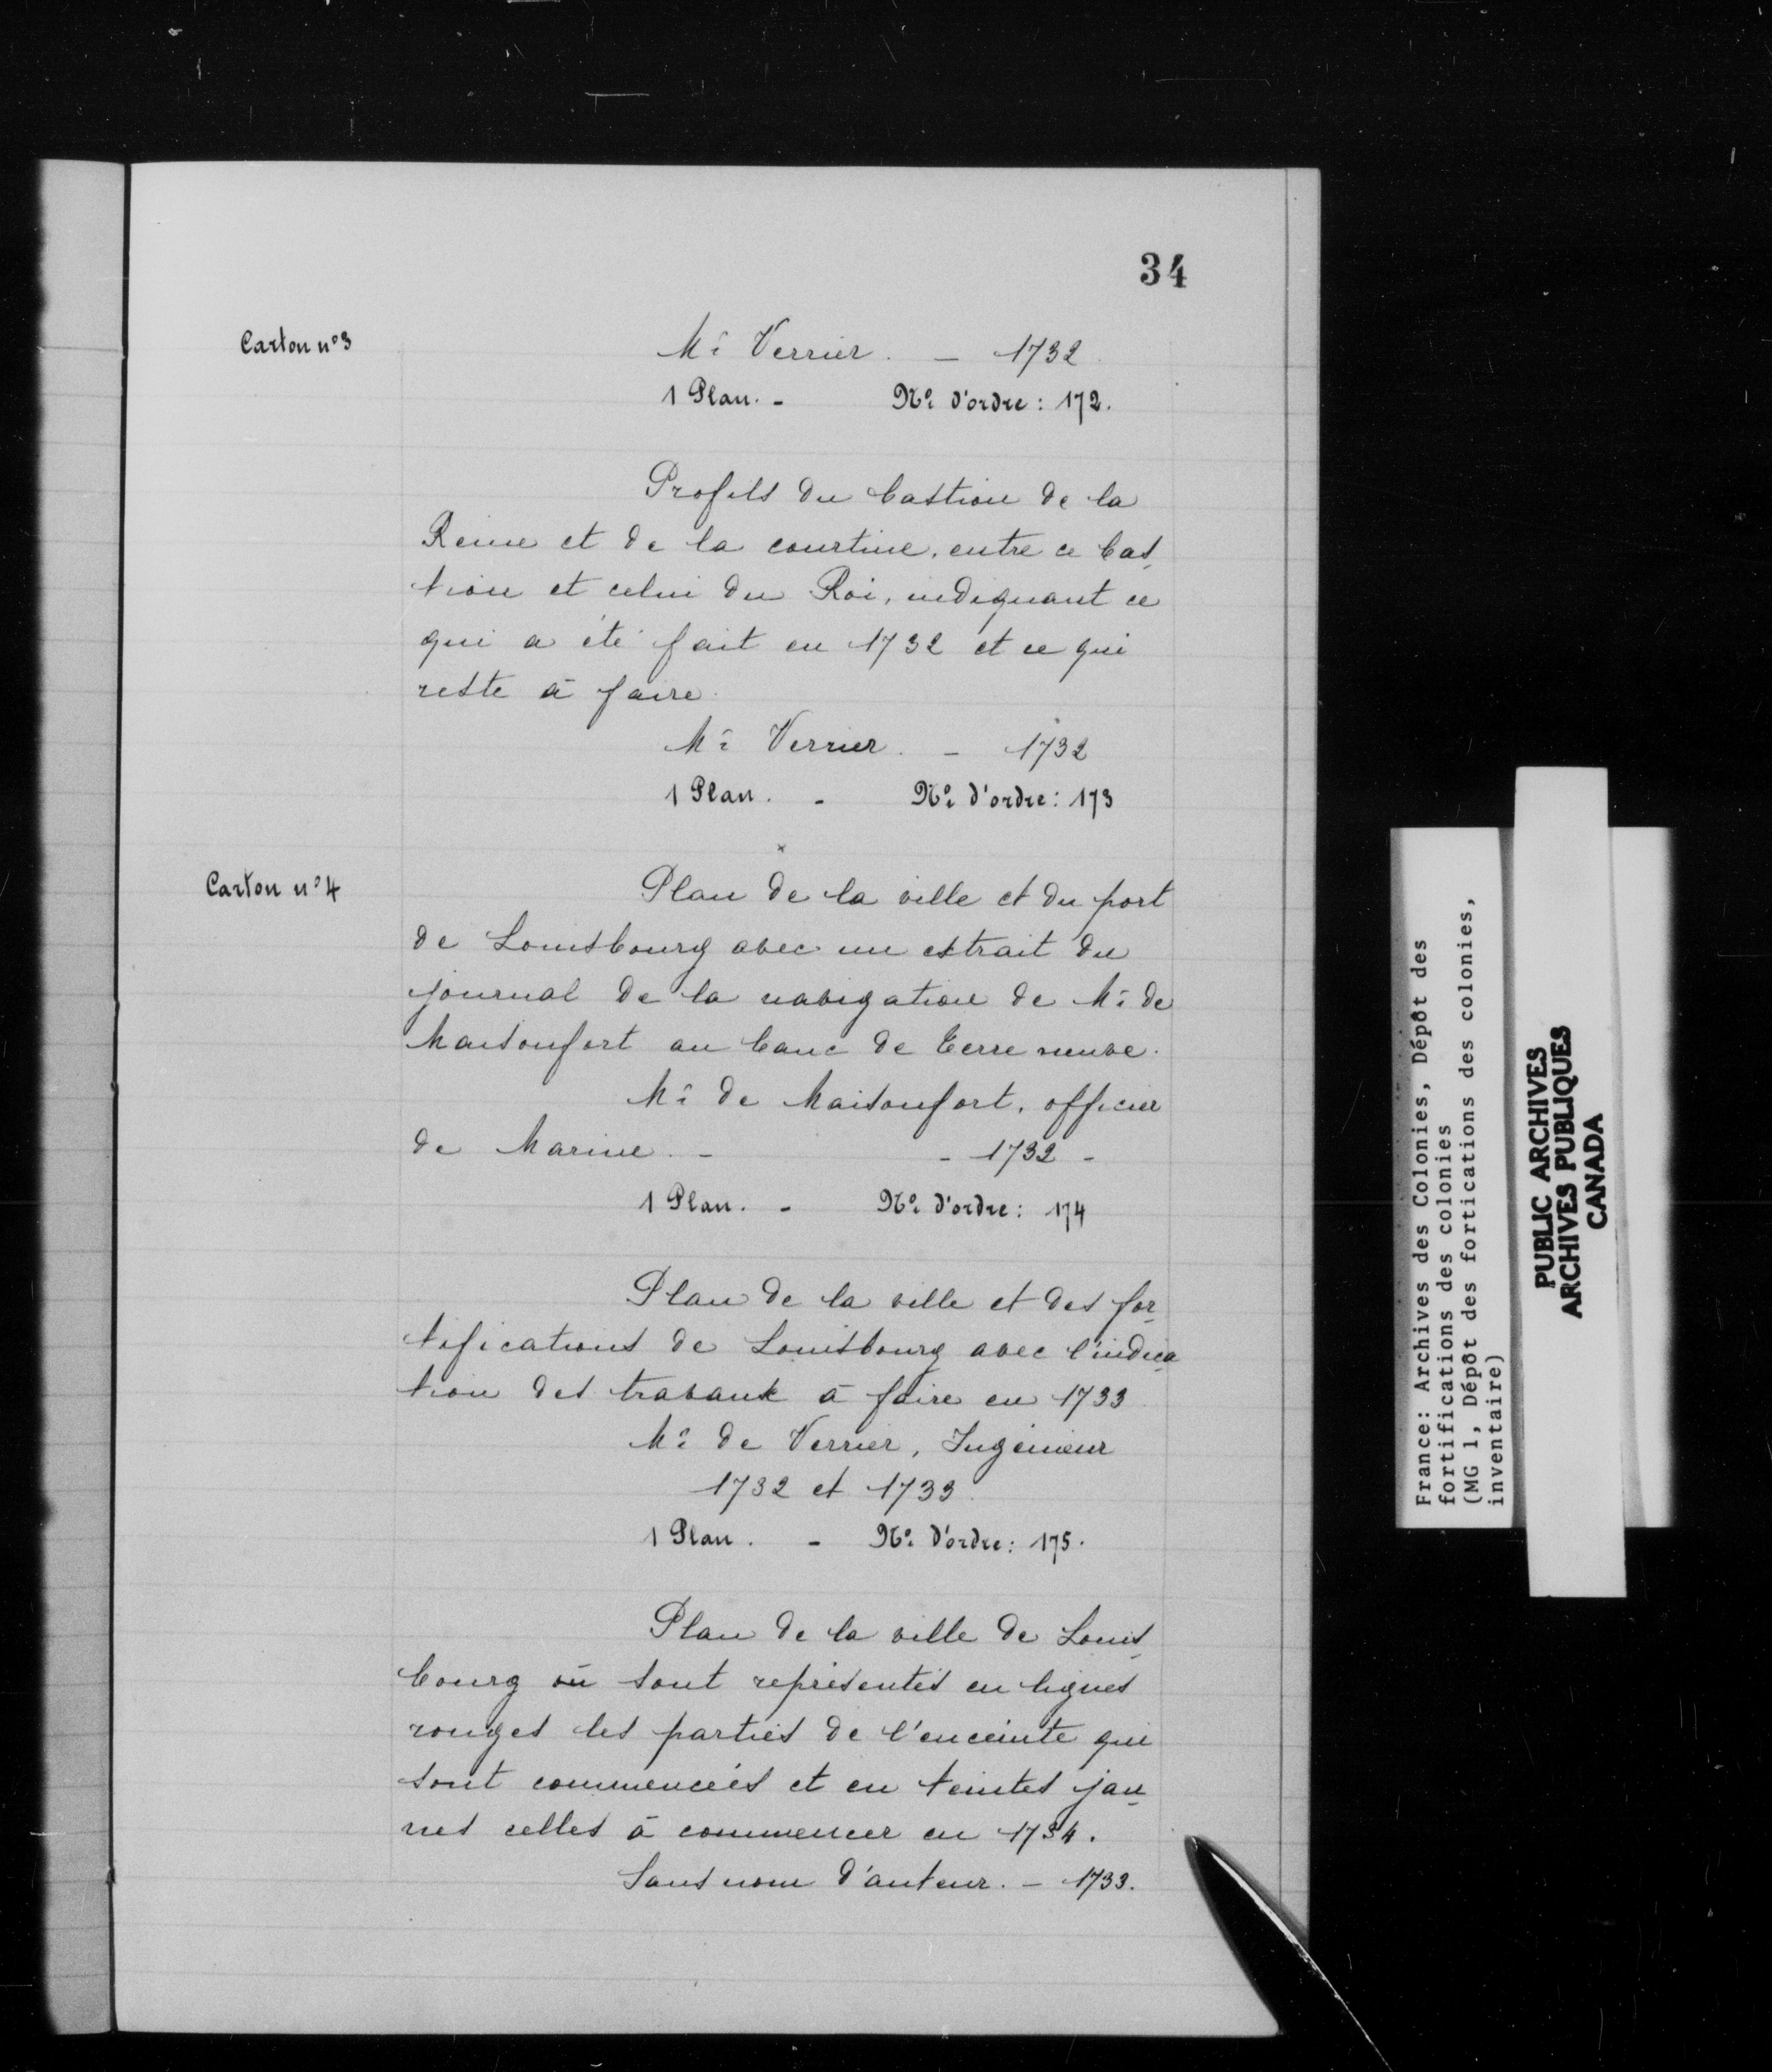 34
Carton nº 3
Mr Verrier. — 1732
1 Plan. - Nº d'ordre : 172.
Profils du bastion de la
Reine et de la courtine, entre ce bas-
tion et celui du Roi, indiquant ce
qui a été fait en 1732 et ce qui
reste à faire.
Mr Verrier. — 1732
1 Plan. - Nº d'ordre : 173
Carton nº 4
Plan de la ville et du port
de Louisbourg avec un extrait du
journal de la navigation de Mr de
Maisonfort au banc de Terre neuve.
Mr de Maisonfort, officier
de Marine. - - 1732 -
1 Plan. - Nº d'ordre : 174
Plan de la ville et des for-
tifications de Louisbourg avec l'indica
tion des travaux à faire en 1733
Mr de Verrier, Ingénieur
1732 et 1733.
1 Plan. - Nº d'ordre : 175.
Plan de la ville de Louis-
bourg où sont représentés en lignes
rouges les parties de l'enceinte qui
sont commencées et en teintes jau-
nes celles à commencer en 1734.
Sans nom d'auteur. — 1733.
France: Archives des Colonies, Dépôt des
fortifications des colonies
(MG 1, Dépôt des fortications des colonies,
inventaire)
PUBLIC ARCHIVES
ARCHIVES PUBLIQUES
CANADA